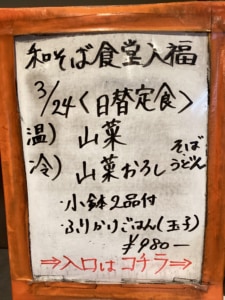 和そば食堂入福
3/24〈日替定食〉
温) 山菜
冷) 山菜おろし そばうどん
・小鉢2品付
・ふりかけごはん(玉子)
¥980-
⇒入口はコチラ⇒